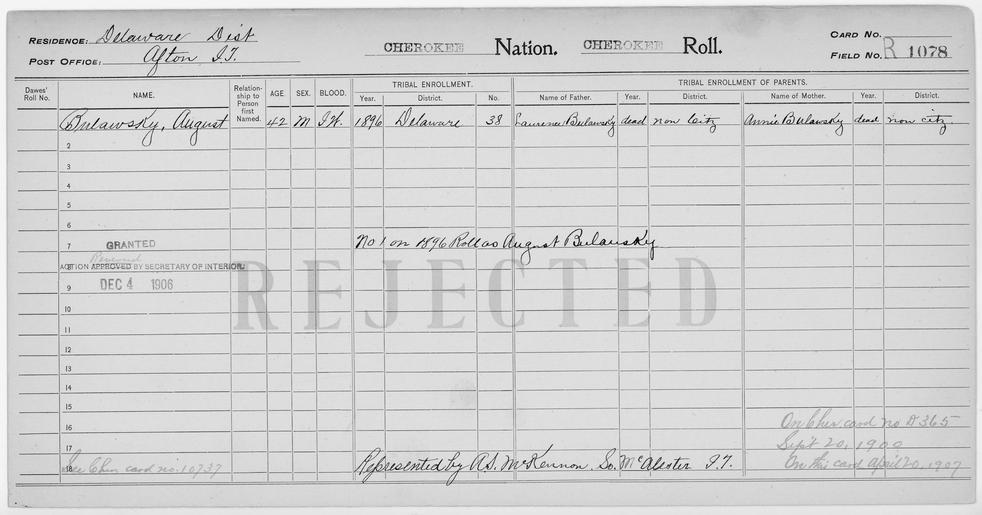 RESIDENCE: Delaware Dist
POST OFFICE: Afton I.T.
CHEROKEE Nation. CHEROKEE Roll.
CARD NO.
FIELD NO. R 1078
Dawes' Roll No.
NAME.
Relationship to Person first Named.
AGE
SEX.
BLOOD.
TRIBAL ENROLLMENT.
Year. District. No.
TRIBAL ENROLLMENT OF PARENTS.
Name of Father. Year. District. Name of Mother. Year. District.
Bulawsky, August 42 M I.W. 1896 Delaware 38 Laurence Bulawsky dead non Citz Annie Bulawsky dead non citz.
2
3
4
5
6
7 GRANTED No 1 on 1896 Roll as August Bulausky
Reversed
8 ACTION APPROVED BY SECRETARY OF INTERIOR.
9 DEC 4 1906
REJECTED
10
11
12
13
14
15
16 On Cher. card no D 365
17 Sept 20, 1900
18 See Cher card no. 10737 Represented by A.S. McKennon, So. McAlester I.T. On this card April 20, 1907